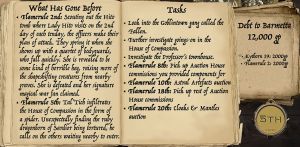 What Has Gone Before
• Flamerule 2nd: Scouting out the Hilt
and where Lady Hilt waits on the 2nd
day of each tenday, the officers make their
plan of attack. They spring it when she
shows up with a quartet of bodyguards,
who fall quickly. She is revealed to be
some kind of horrible hag, raising more of
the shapeshifting creatures from nearby
She is defeated and her signature
magical war fan claimed.
• Flamerule 5th: Tal Tich infiltrates
the House of Compassion in the form of
a spider. Unexpectedly finding the ruby
dragonborn of Sendier being tortured, he
calls on the others waiting nearby to enter
Tasks
• Look into the Goldentorn gang called the
Fallen.
• Further investigate goings on in the
House of Compassion.
• Investigate the Professor's townhouse.
• Flamerule 8th: Pick up Auction House
commissions you provided components for
• Flamerule 10th: Astral Artefacts auction
• Flamerule 18th: Pick up rest of Auction
House commissions
• Flamerule 20th: Cloaks & Mantles
auction
Debt to Barnetta
12,000 gp
• Kythorn 29: 2000gp
• Flamerule 2: 2000gp
5TH